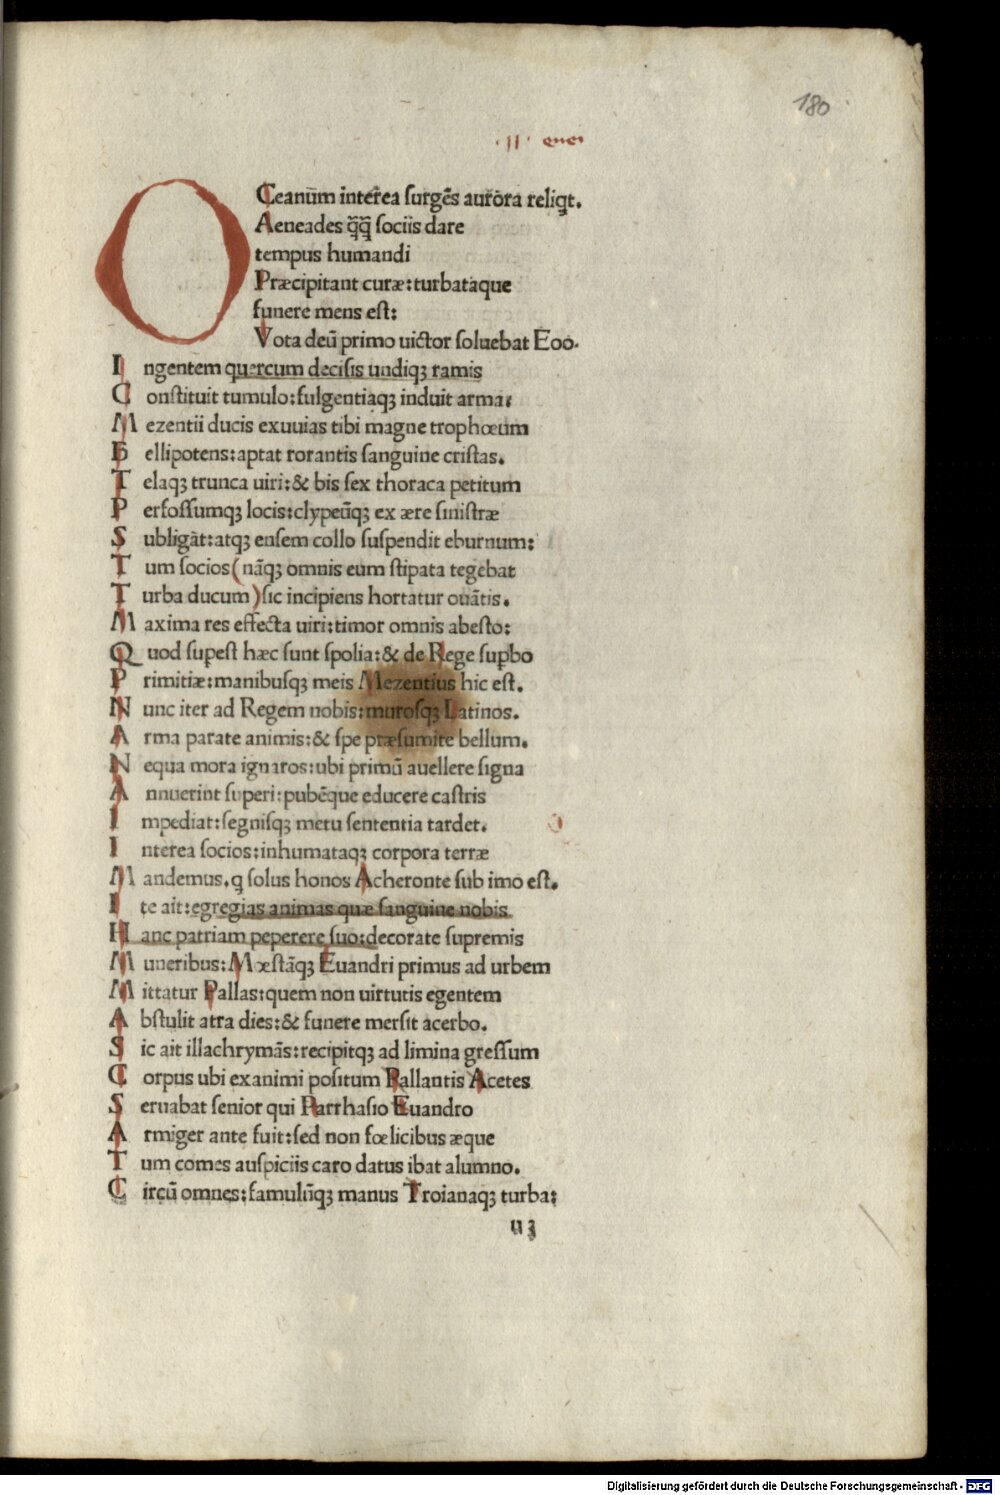 180
.11. enei
OCeanūm interea surgēs aurora reliqt.
Aeneades q̄q̄ sociis dare
tempus humandi
Præcipitant curæ:turbataque
funere mens est:
Vota deū primo uictor soluebat Eoo.
I ngentem quercum decisis undiqꝫ ramis
C onstituit tumulo:fulgentiaqꝫ induit arma:
M ezentii ducis exuuias tibi magne trophœum
B ellipotens:aptat rorantis sanguine cristas.
T elaqꝫ trunca uiri:& bis sex thoraca petitum
P erfossumqꝫ locis:clypeūqꝫ ex ære sinistræ
S ubligat:atqꝫ ensem collo suspendit eburnum:
T um socios(nāqꝫ omnis eum stipata tegebat
T urba ducum)sic incipiens hortatur ouātis.
M axima res effecta uiri:timor omnis abesto:
Q uod supest hæc sunt spolia:& de Rege supbo
P rimitiæ:manibusqꝫ meis Mezentius hic est.
N unc iter ad Regem nobis:murosqꝫ Latinos.
A rma parate animis:& spe præsumite bellum.
N equa mora ignaros:ubi primū auellere signa
A nnuerint superi:pubēque educere castris
I mpediat:segnisqꝫ metu sententia tardet.
I nterea socios:inhumataqꝫ corpora terræ
M andemus.q solus honos Acheronte sub imo est.
I te ait:egregias animas quæ sanguine nobis
H anc patriam peperere suo:decorate supremis
M uneribus:Mœstāqꝫ Euandri primus ad urbem
M ittatur Pallas:quem non uirtutis egentem
A bstulit atra dies:& funere mersit acerbo.
S ic ait illachrymās:recipitqꝫ ad limina gressum
C orpus ubi exanimi positum Pallantis Acetes
S eruabat senior qui Parrhasio Euandro
A rmiger ante fuit:sed non fœlicibus æque
T um comes auspiciis caro datus ibat alumno.
C ircū omnes:famulūqꝫ manus Troianaqꝫ turba:
u3
Digitalisierung gefördert durch die Deutsche Forschungsgemeinschaft - DFG